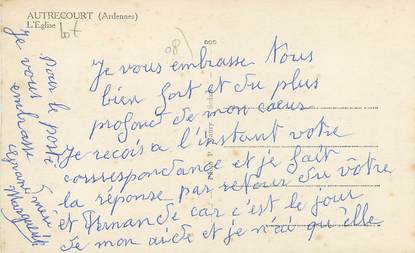 AUTRECOURT (Ardennes)
L'Eglise
08
Je vous embrasse Nous
bien fort et du plus
profond de mon cœur
Je reçois a l'instant votre
correspondance et je fait
la réponse par retour du vôtre
et Fernande car c'est le jour
de mon aide et je n'ai qu'elle
pour le posté
Je vous
embrasse
Marguerite